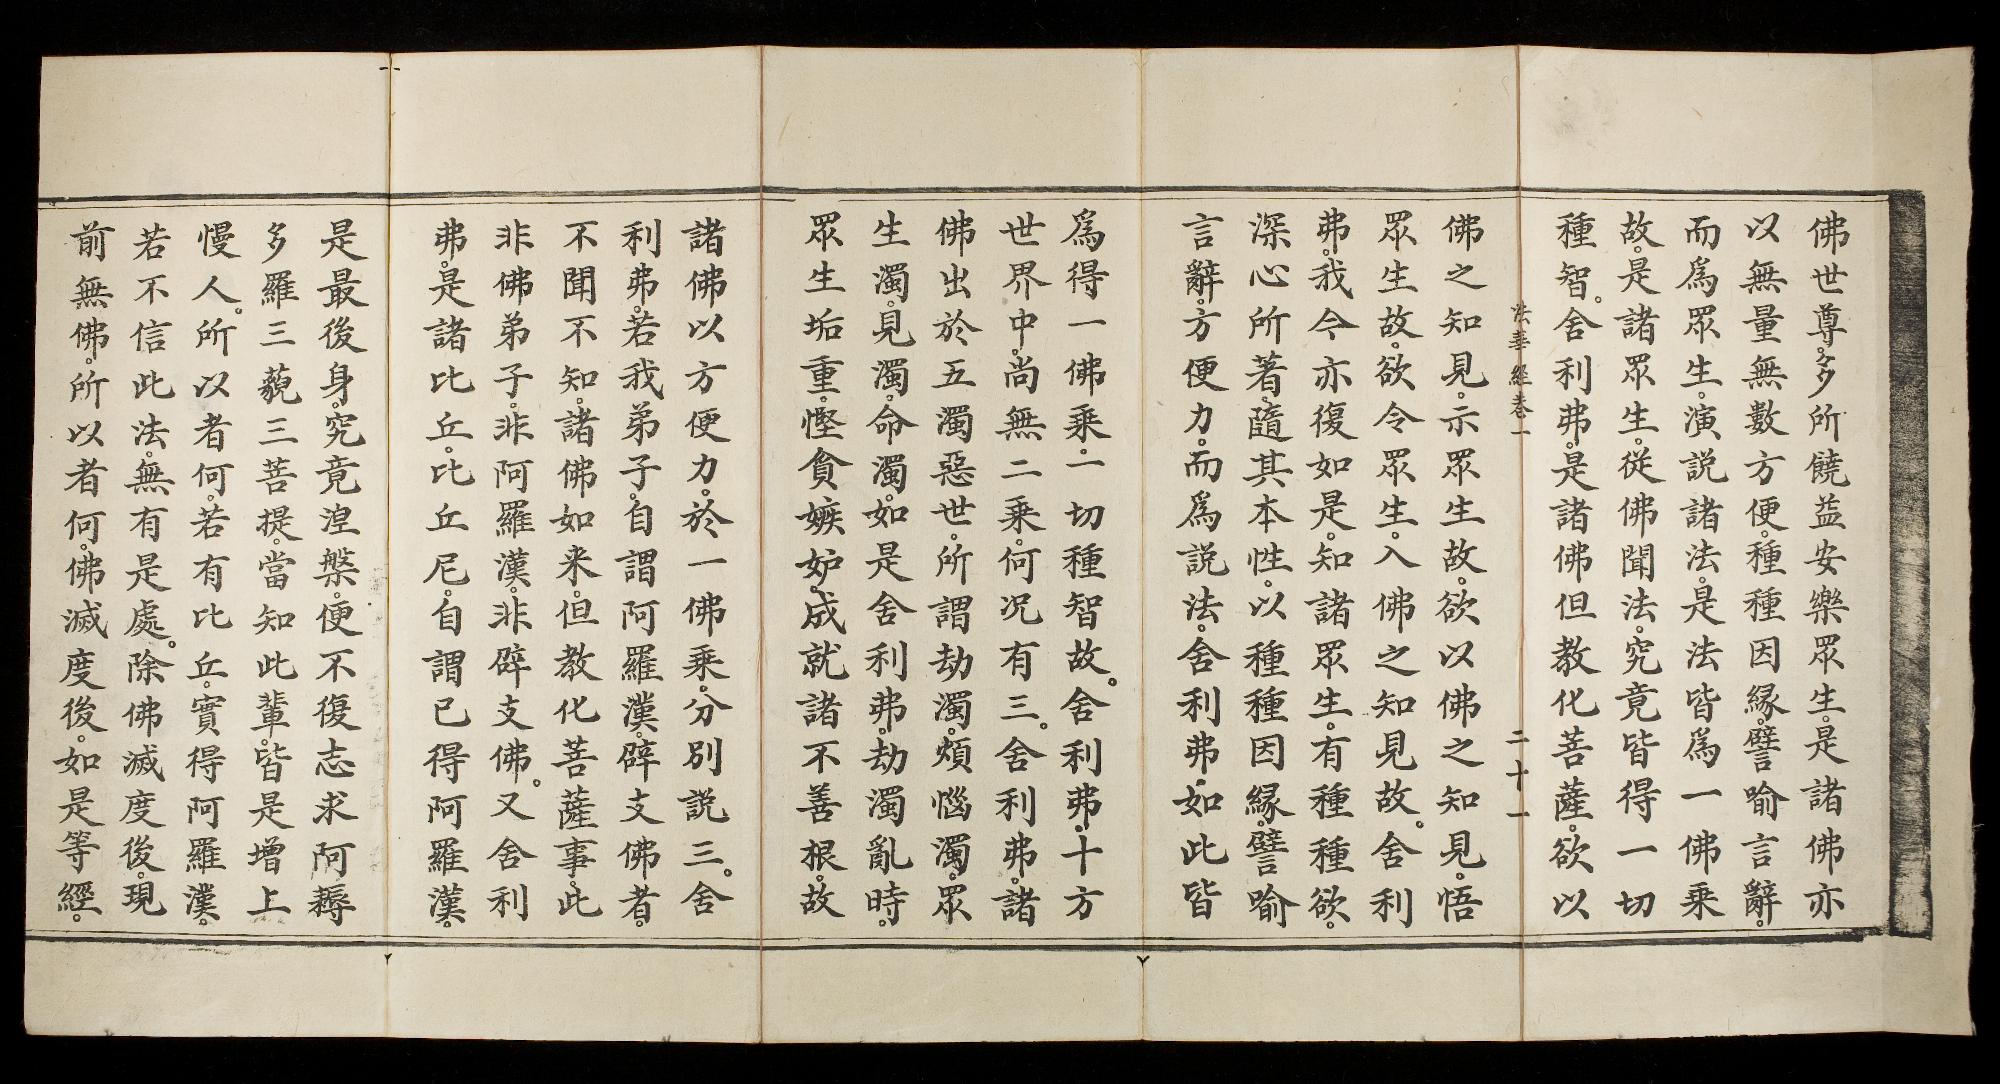 佛世尊。多所饒益安樂眾生。是諸佛亦
以無量無數方便。種種因緣。譬喻言辭。
而為眾生。演說諸法。是法皆為一佛乘
故。是諸眾生。從佛聞法。究竟皆得一切
種智。舍利弗。是諸佛但教化菩薩。欲以
法華經卷一 二十一
佛之知見。示眾生故。欲以佛之知見。悟
眾生故。欲令眾生。入佛之知見故。舍利
弗。我今亦復如是。知諸眾生。有種種欲。
深心所著。隨其本性。以種種因緣。譬喻
言辭。方便力。而為說法。舍利弗。如此皆
為得一佛乘。一切種智故。舍利弗。十方
世界中。尚無二乘。何況有三。舍利弗。諸
佛出於五濁惡世。所謂劫濁。煩惱濁。眾
生濁。見濁。命濁。如是舍利弗。劫濁亂時。
眾生垢重。慳貪嫉妒。成就諸不善根。故
諸佛以方便力。於一佛乘。分別說三。舍
利弗。若我弟子。自謂阿羅漢。辟支佛者。
不聞不知。諸佛如来。但教化菩薩事。此
非佛弟子。非阿羅漢。非辟支佛。又舍利
弗。是諸比丘。比丘尼。自謂已得阿羅漢。
是最後身。究竟涅槃。便不復志求阿耨
多羅三藐三菩提。當知此輩。皆是增上
慢人。所以者何。若有比丘。實得阿羅漢。
若不信此法。無有是處。除佛滅度後。現
前無佛。所以者何。佛滅度後。如是等經。